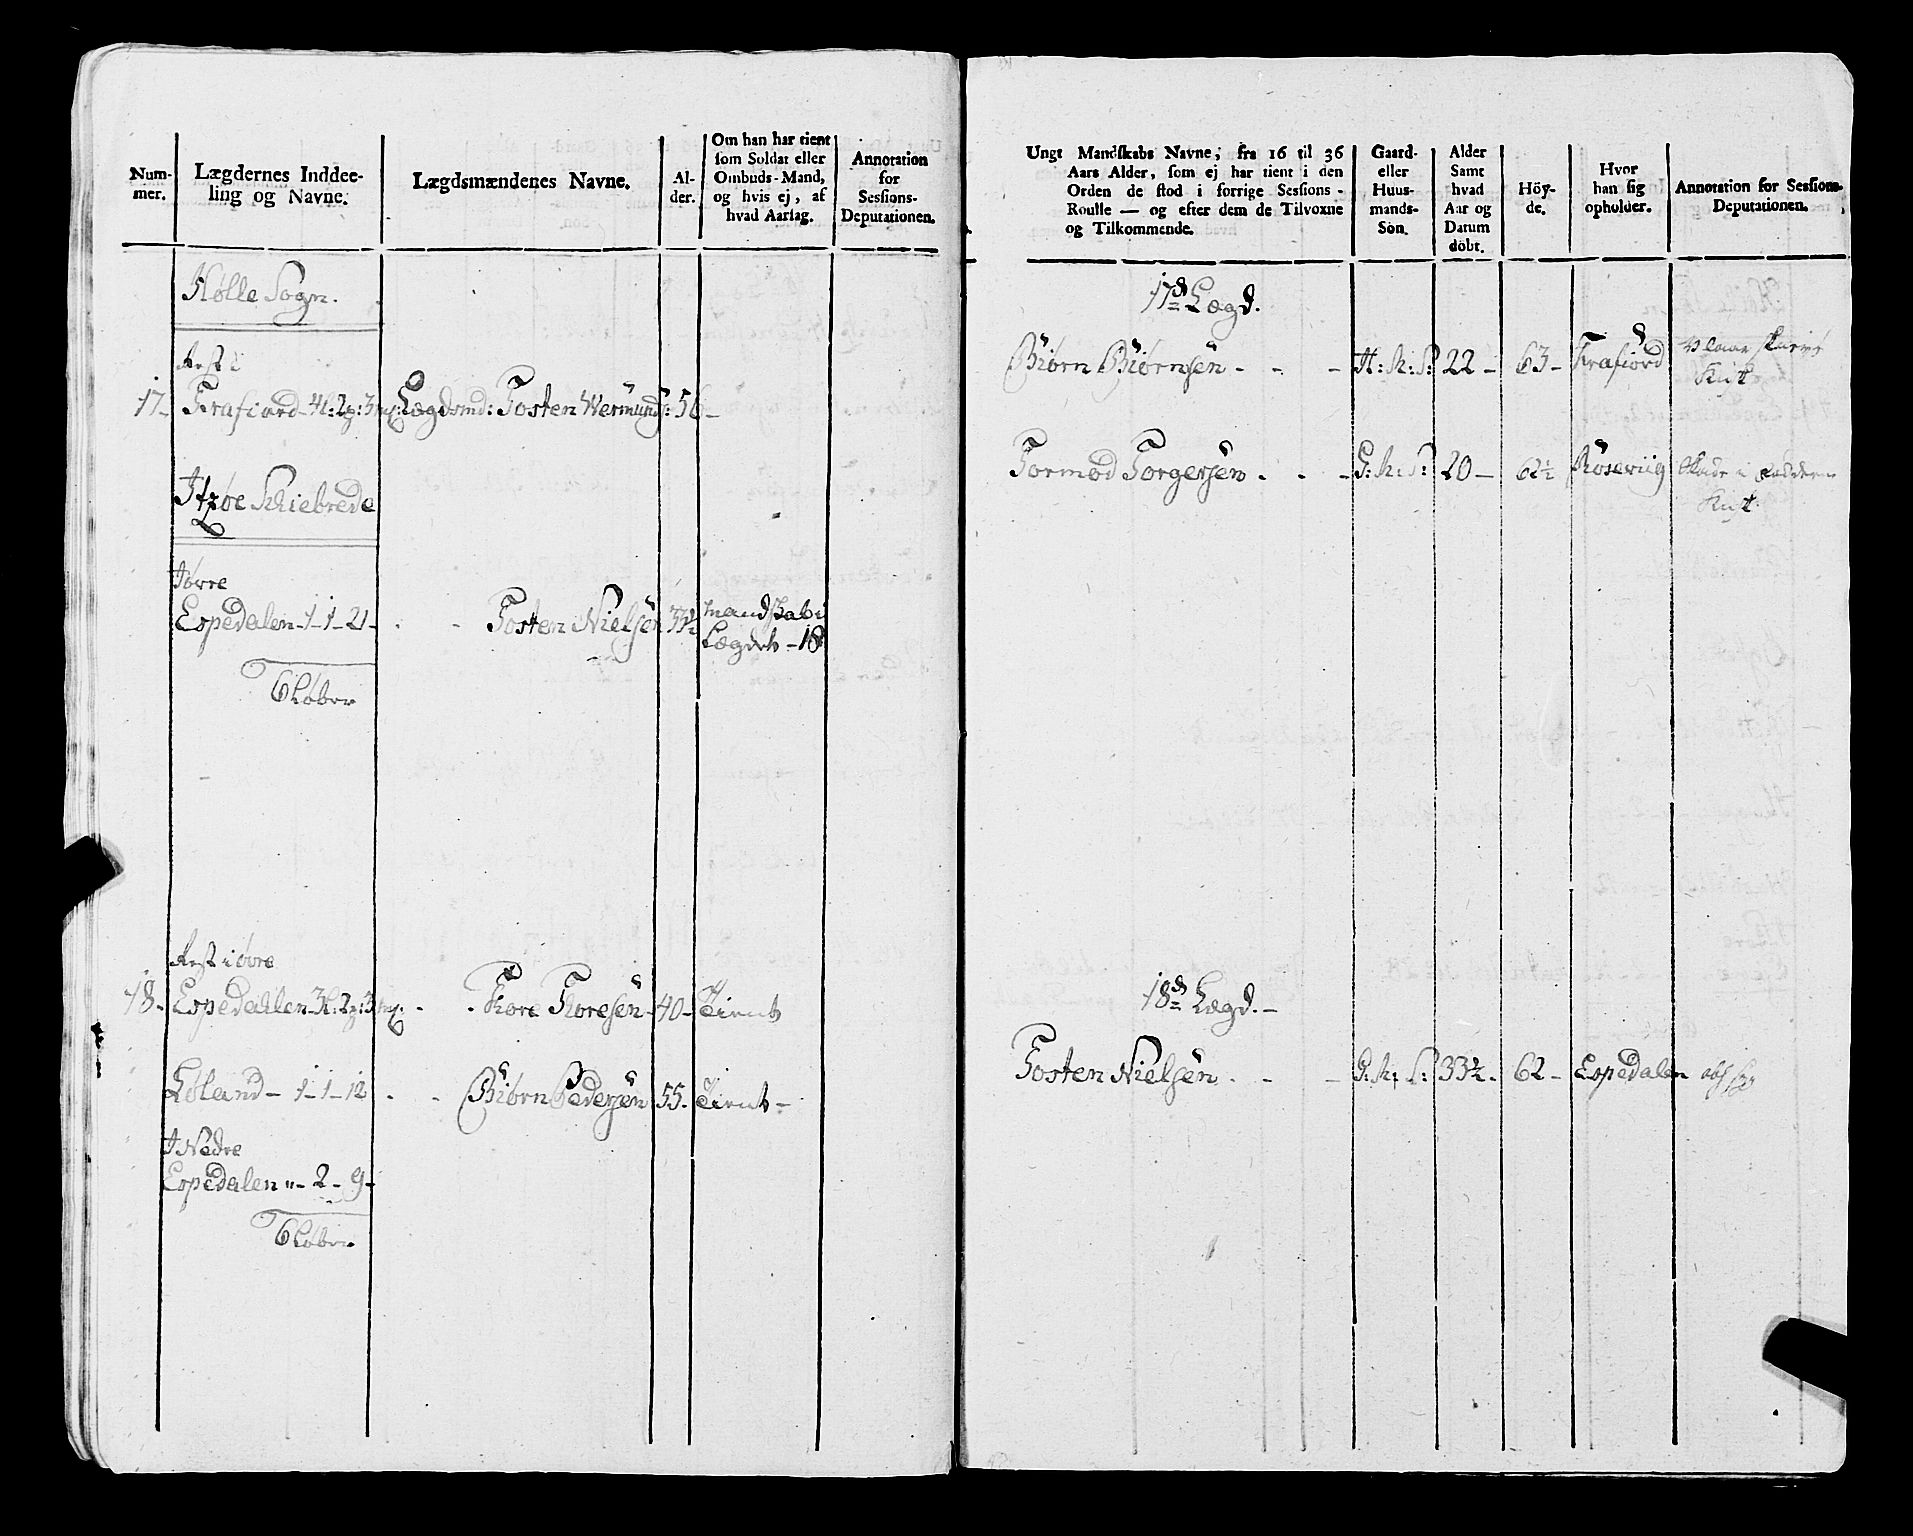 Num-
mer.
Lægdernes Inddee-
ling og Navne.
Lægdsmændenes Navne.
Al-
der.
Om han har tient
som Soldat eller
Ombuds-Mand,
og hvis ej, af
hvad Aarsag.
Annotation
for
Sessions-
Deputationen.
Hølle Sogn.
Rest i
17- Frafiord - 4l: 2p: 3mk: Lægdsmd: Tosten Wermunds: 56-
Itzøe Skiebrede
I øvre
Espedalen - 1 - 1 - 21 - Tosten Nielsen 33½ Mandskab i
Lægdet - 18
6 Løber
Rest i øvre
18- Espedahlen - 3l: 2p: 3mk: Tore Toresen - 40 - Tient
Løland - 1 - 1 - 12 Biørn Pedersen 55. Tient -
I Nedre
Espedalen " - 2 - 9 -
6 Løber
Ungt Mandskabs Navne, fra 16 til 36
Aars Alder, som ej har tient i den
Orden de stod i forrige Sessions-
Roulle — og efter dem de Tilvoxne
og Tilkommende.
Gaard-
eller
Huus-
mands-
Søn.
Alder
Samt
hvad
Aar og
Datum
döbt.
Höy-
de.
Hvor
han sig
opholder.
Annotation for Sessions-
Deputationen.
17de Lægd.
Biørn Biørnsen - - - H: R: S: 22 - 63 - Frafiord
Tormod Torgersen . - - G: R: S: 20 - 62½ Røseviig Skade i
18de Lægd. -
Tosten Nielsen . - - G: R: S: 33½ - 62 - Espedalen